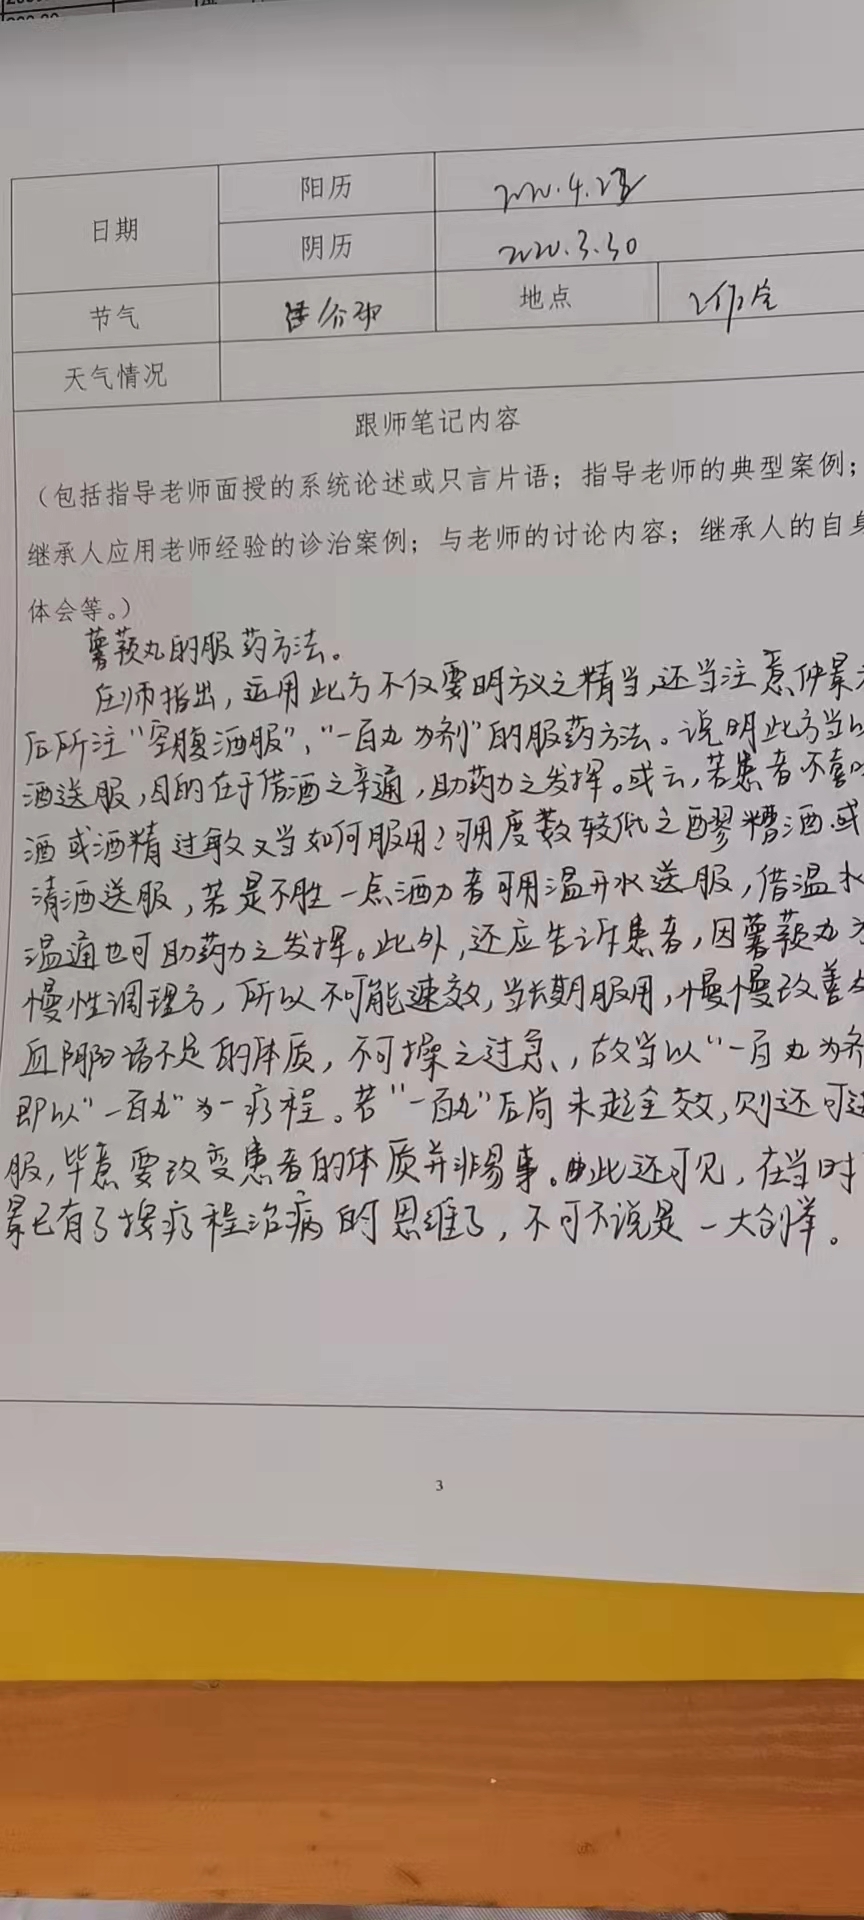 日期
阳历
2020.4.2
阴历
2020.3.30
节气
地点
工作室
天气情况
跟师笔记内容
（包括指导老师面授的系统论述或只言片语；指导老师的典型案例；
继承人应用老师经验的诊治案例；与老师的讨论内容；继承人的自身
体会等。）
薯蓣丸的服药方法。
庄师指出，运用此方不仅要明方义之精当，还当注意仲景
后所注“空腹酒服”，“一百丸为剂”的服药方法。说明此方当以
酒送服，目的在于借酒之辛通，助药力之发挥。或云，若患者不喜
酒或酒精过敏又当如何服用？可用度数较低之醪糟酒或
清酒送服，若是不胜一点酒力者可用温开水送服，借温水
温通也可助药力之发挥。此外，还应告诉患者，因薯蓣丸
慢性调理方，所以不可能速效，当长期服用，慢慢改善
血阴阳诸不足的体质，不可操之过急，故当以“一百丸为剂
即以“一百丸”为一疗程。若“一百丸”后尚未起全效，则还可
服，毕竟要改变患者的体质并非易事。由此还可见，在当时
景已有了按疗程治病的思维了，不可不说是一大创举。
3